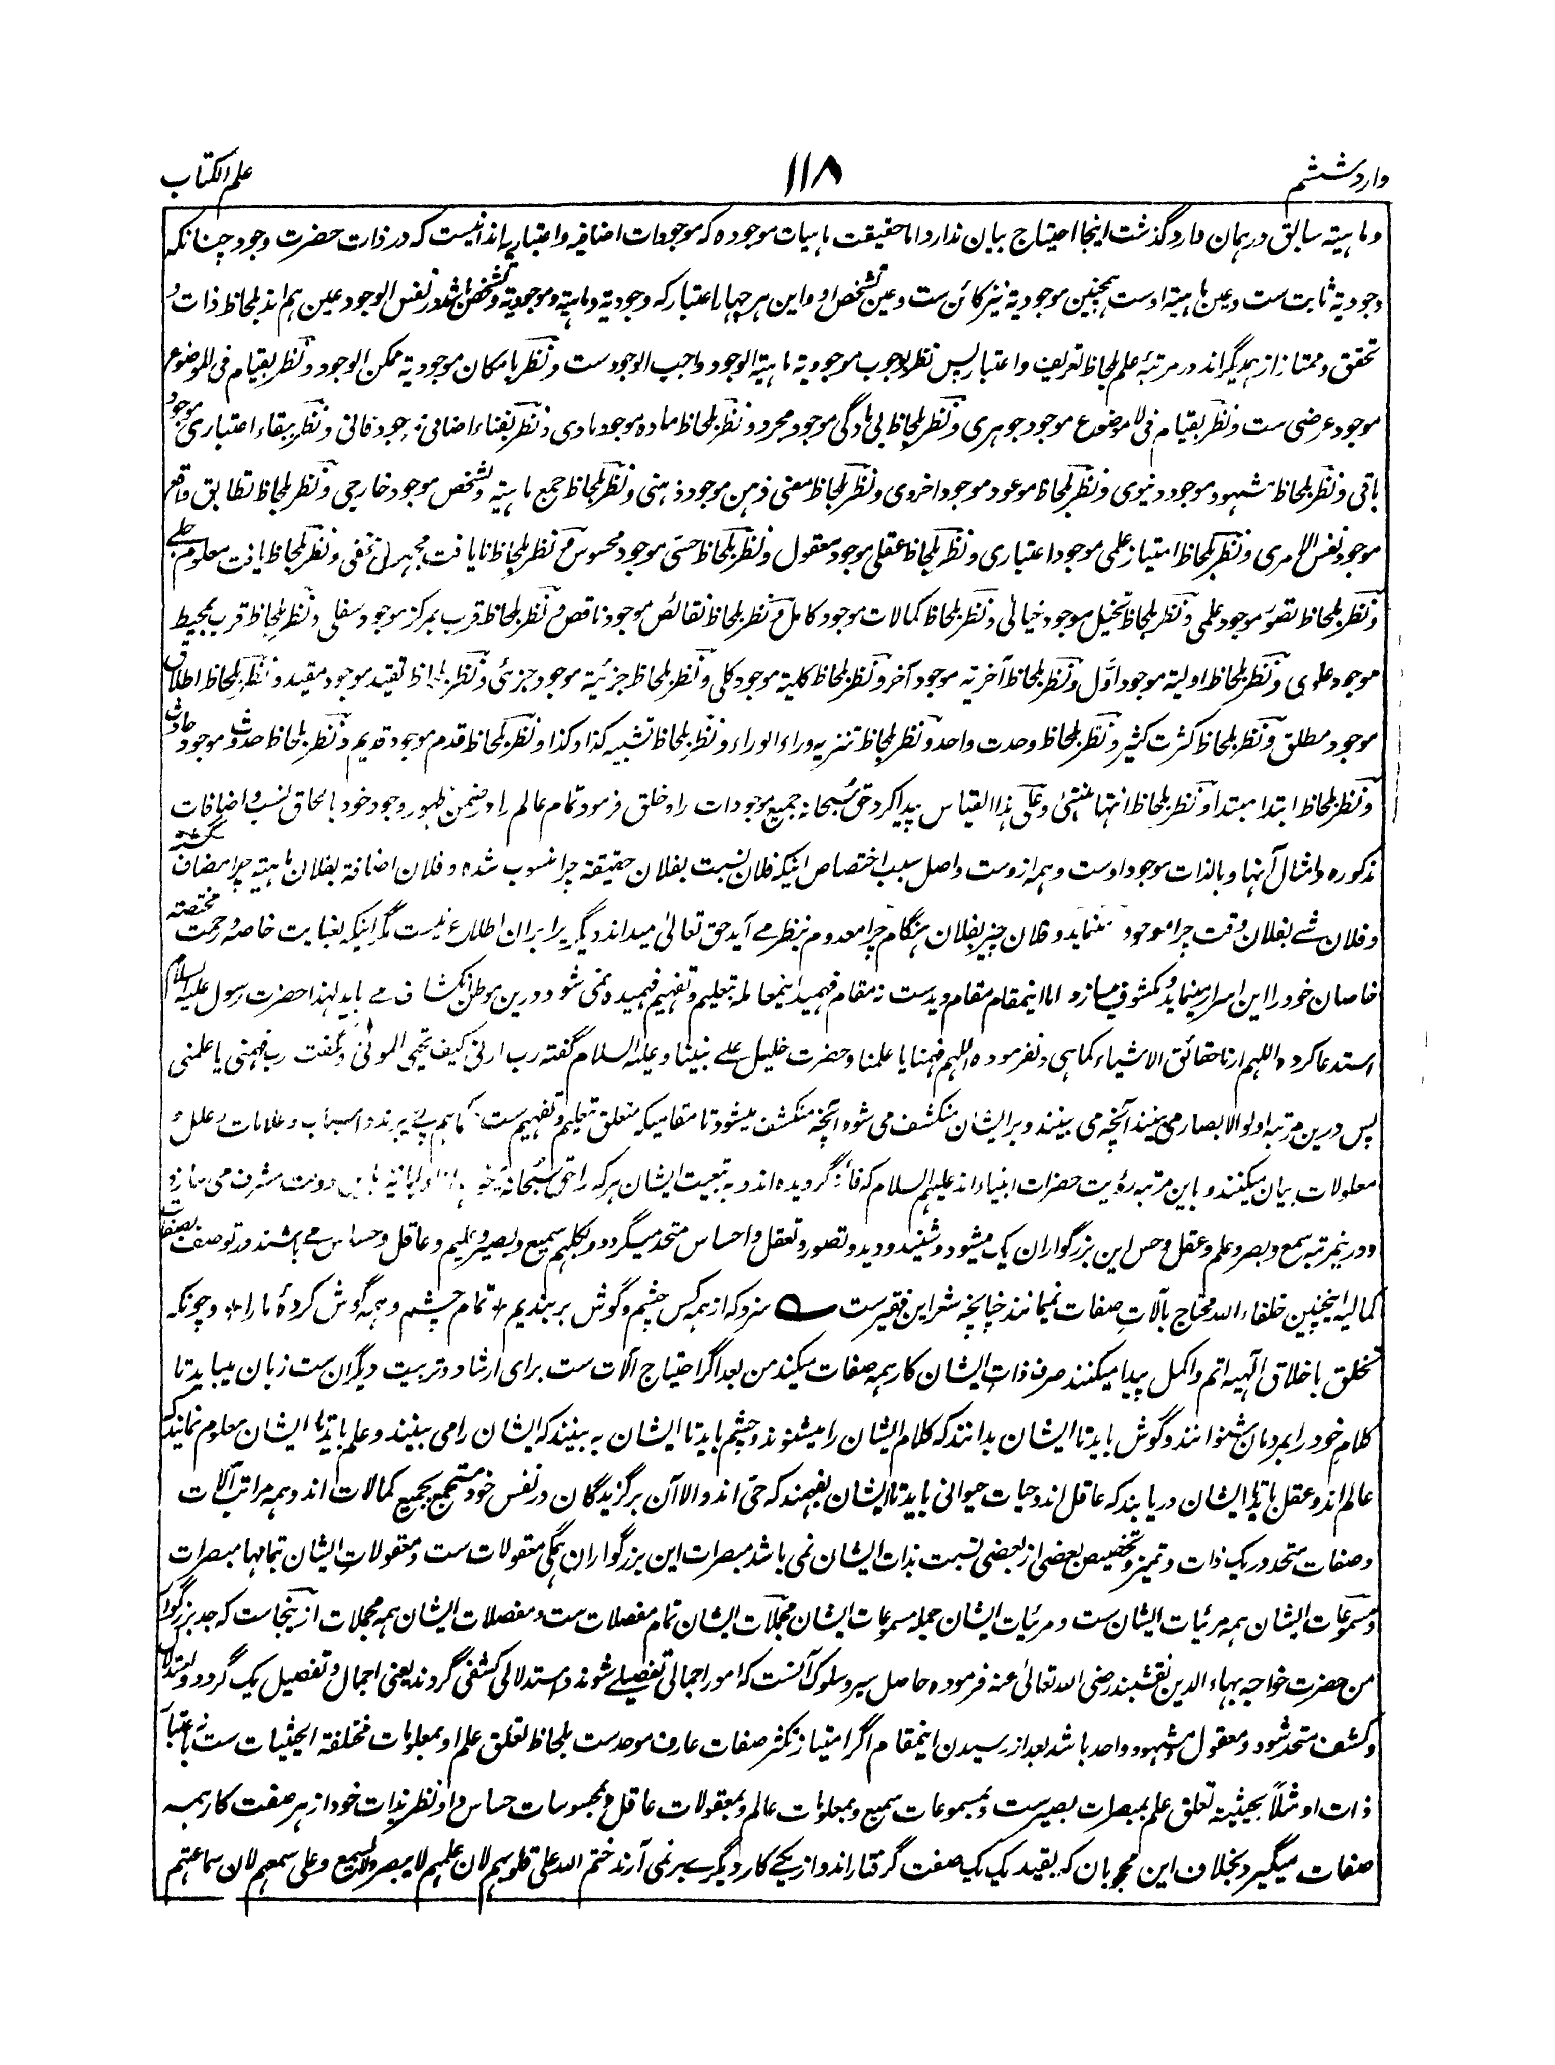 وارد ششم
۱۱۸
علم الکتاب
و ماهیته سابق در همان وارد گذشت اینجا احتیاج بیان ندارد اما حقیقت ماهیات موجوده که موجودات اضافیه و اعتباریه اند اینست که در ذات حضرت وجود چنانکه
وجودیة ثابت ست و عین ماهیته اوست همچنین موجودیة نیز کائن ست و عین تشخص او و این هر چهار اعتبار که وجودیة و ماهیته و موجودیة و تشخص باشد در نفس الوجود عین هم اند بلحاظ ذات و
تحقق و ممتاز از همدیگر اند در مرتبۀ علم بلحاظ تعریف و اعتبار پس نظر بوجوب موجودیة ماهیته الوجود واجب الوجود ست و نظر بامکان موجودیة ممکن الوجود و نظر بقیام فی الموضوع
موجود عرضی ست و نظر بقیام فی لا موضوع موجود جوهری و نظر بلحاظ بی مادگی موجود مجرد و نظر بلحاظ ماده موجود مادی و نظر بفناء اضافی موجود فانی و نظر ببقاء اعتباری موجود
باقی و نظر بلحاظ شهود موجود دنیوی و نظر بلحاظ موعود موجود اخروی و نظر بلحاظ معنی ذهن موجود ذهنی و نظر بلحاظ جمع ماهیته و تشخص موجود خارجی و نظر بلحاظ تطابق واقع
موجود نفس الامری و نظر بلحاظ امتیاز علمی موجود اعتباری و نظر بلحاظ عقلی موجود معقول و نظر بلحاظ حسی موجود محسوس و نظر بلحاظ نایافت مجهول خفی و نظر بلحاظ یافت معلوم جلی
و نظر بلحاظ تصور موجود علمی و نظر بلحاظ تخیل موجود خیالی و نظر بلحاظ کمالات موجود کامل و نظر بلحاظ نقائص موجود ناقص و نظر بلحاظ قرب بمرکز موجود سفلی و نظر بلحاظ قرب بمحیط
موجود علوی و نظر بلحاظ اولیته موجود اول و نظر بلحاظ آخریه موجود آخر و نظر بلحاظ کلیته موجود کلی و نظر بلحاظ جزئیة موجود جزئی و نظر بلحاظ تقید موجود مقید و نظر بلحاظ اطلاق
موجود مطلق و نظر بلحاظ کثرت کثیر و نظر بلحاظ وحدت واحد و نظر بلحاظ تنزیه وراء الوراء و نظر بلحاظ تشبیه کذا و کذا و نظر بلحاظ قدم موجود قدیم و نظر بلحاظ حدوث موجود حادث
و نظر بلحاظ ابتدا مبتدا و نظر بلحاظ انتها منتهی و علی هذا القیاس پیدا کرد حق سبحانه جمیع موجودات را و خلق فرمود تمام عالم را در ضمن ظهور وجود خود بالحاق نسب و اضافات
مذکوره و امثال آنها و بالذات موجود اوست و همه ازوست و اصل سبب اختصاص اینکه فلان نسبت بفلان حقیقة چرا منسوب شده و فلان اضافة بفلان ماهیته چرا مضاف گشته
و فلان شے بفلان وقت چرا موجود مینماید و فلان چیز بفلان هنگام چرا معدوم بنظر مے آید حق تعالی میداند دیگر یرا بران اطلاع نیست مگر اینکه بعنایت خاصه و رحمت مختصه
خاصان خود را این اسرار مینماید و مکشوف میسازد اما اینمقام مقام دید ست نه مقام فهمید اینمعامله بتعلیم و تفهیم فهمیده نمی شود و درین موطن انکشاف مے باید لهذا حضرت رسول علیه السلام
استدعا کرده اللهم ارنا حقائق الاشیاء کما هی و نفرموده اللهم فهمنا یا علمنا و حضرت خلیل علے نبینا و علیه السلام گفته رب ارنی کیف تحیی الموتی و نگفت رب فهمنی یا علمنی
پس درین مرتبه اولوالابصار می بینند آنچه می بینند و بر ایشان منکشف می شود آنچه منکشف میشود تا مقامیکه متعلق تعلیم و تفهیم ست هم پے میبرند و اسباب و علامات و علل و
معلولات بیان میکنند و باین مرتبه رؤیت حضرات انبیاء اند علیهم السلام که فائز گردیده اند و به تبعیت ایشان هر که را حق سبحانه باین دولت مشرف می سازد
و درینمرتبه سمع و بصر و علم و عقل و حس این بزرگواران یک میشود و شنید و دید و تصور و تعقل و احساس متحد میگردد و بکلهم سمیع و بصیر و علیم و عاقل و حساس مے باشند و در توصف بصفات
کمالیه اینچنین خلفاء الله محتاج بآلات صفات نمیمانند چنانچه شعر این فقیرست سزد که از همه کس چشم و گوش بربندیم * تمام چشم و همه گوش کردۀ ما را * و چونکه
تخلق باخلاق الهیه اتم و اکمل پیدا میکنند صرف ذات ایشان کار همه صفات میکند من بعد اگر احتیاج آلات ست برای ارشاد و تربیت دیگران ست زبان میباید تا
کلام خود را بمردمان بشنوانند و گوش باید تا ایشان بدانند که کلام ایشان را میشنوند و چشم باید تا ایشان به بینند که ایشان را می بینند و علم باید تا ایشان معلوم نمایند که
عالم اند و عقل باید تا ایشان دریابند که عاقل اند و حیات حیوانی باید تا ایشان بفهمند که حی اند و الا آن برگزیدگان در نفس خود مستجمع بجمیع کمالات اند و همه مراتب آلات
و صفات متحد در یک ذات و تمیز و تخصیص بعضی از بعضی نسبت بذات ایشان نمی باشد مبصرات این بزرگواران همگی معقولات ست و معقولات ایشان بتمامها مبصرات
و مسموعات ایشان همه مرئیات ایشان ست و مرئیات ایشان جمله مسموعات ایشان مجملات ایشان تمام مفصلات ست و مفصلات ایشان همه مجملات ازینجاست که جد بزرگوار
من حضرت خواجه بهاء الدین نقشبند رضی الله تعالی عنه فرموده حاصل سیر و سلوک آنست که امور اجمالی تفصیلے شوند و استدلالی کشفی گردند یعنی اجمال و تفصیل یک گردد و استدلال
و کشف متحد شود و معقول و مشهود واحد باشد بعد از رسیدن اینمقام اگر امتیاز تکثر صفات عارف موحد ست بلحاظ تعلق علم او بمعلومات مختلفة الحیثیات ست نه باعتبار
ذات او مثلاً بحیثیته تعلق علم بمبصرات بصیرست و بمسموعات سمیع و بمعلومات عالم و بمعقولات عاقل و بمحسوسات حساس و او نظر بذات خود از هر صفت کار همه
صفات میگیرد بخلاف این محجوبان که بقید یک یک صفت گرفتار اند و از یکے کار دیگرے بر نمی آرند ختم الله علی قلوبهم لان علمهم لا یبصر و لا یسمع و علی سمعهم لان سماعتهم